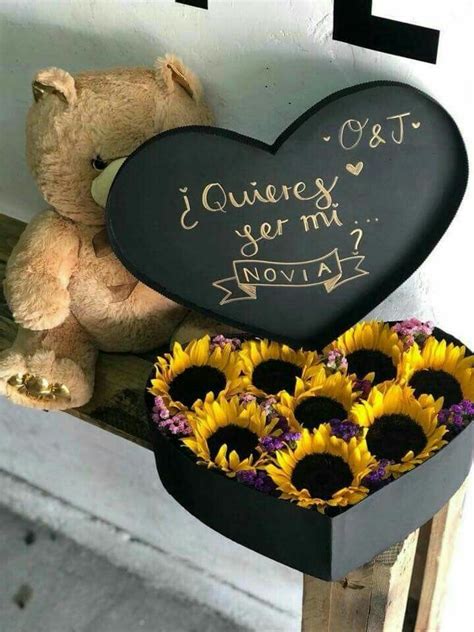 • O & J •
¿Quieres
ser mi ...
NOVIA ?